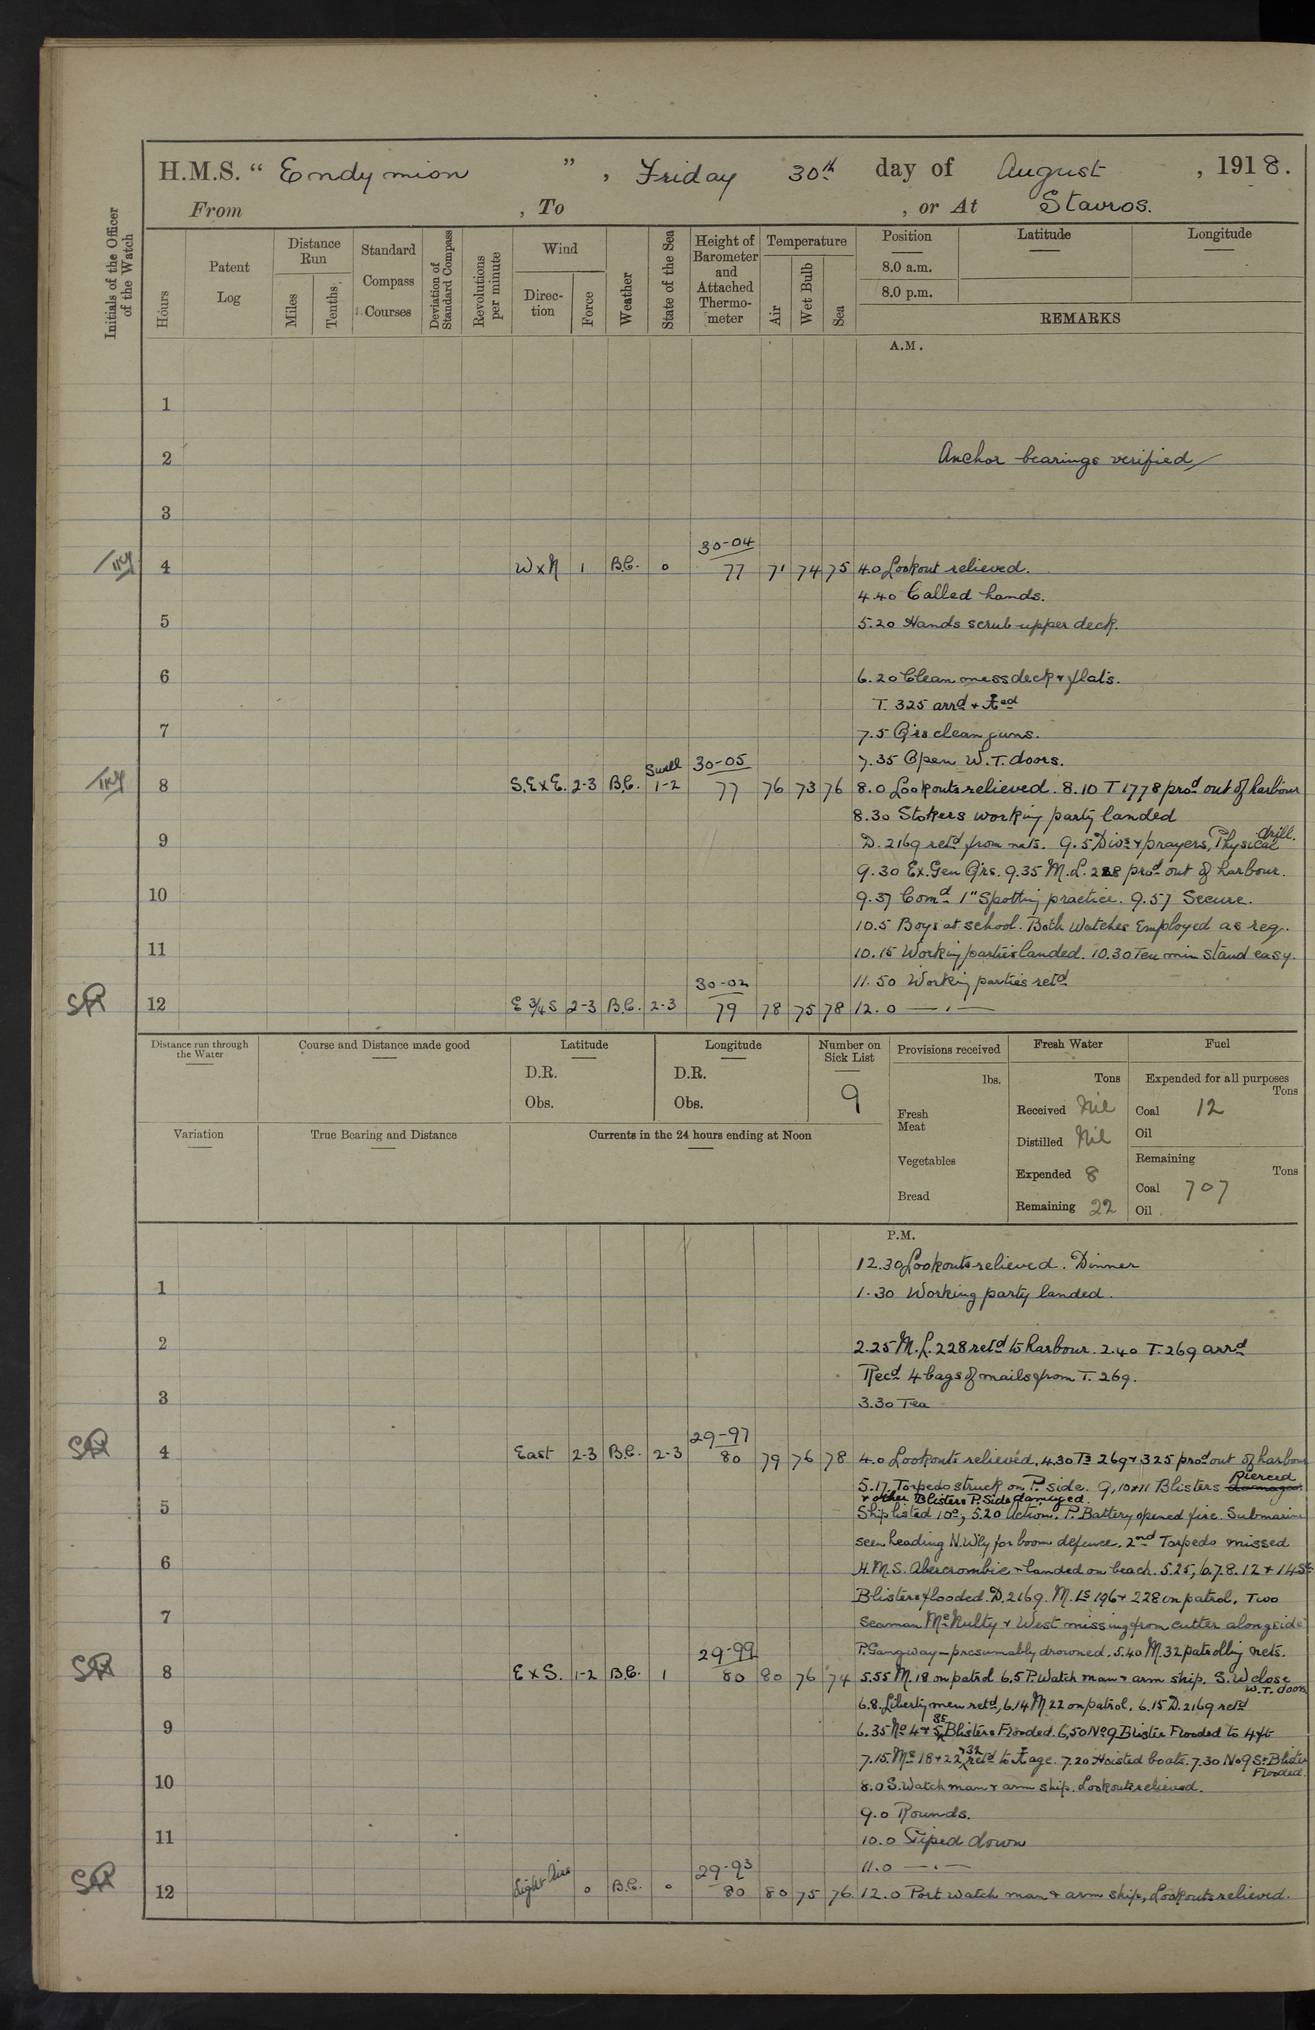 H.M.S. " Endymion ", Friday 30th day of August, 1918.
From , To , or At Stavros.
Initials of the Officer of the Watch
Hours
Patent Log
Distance Run
Miles
Tenths
Standard Compass Courses
Deviation of Standard Compass
Revolutions per minute
Wind
Direction
Force
Weather
State of the Sea
Height of Barometer and Attached Thermometer
Temperature
Air
Wet Bulb
Sea
Position
8.0 a.m.
8.0 p.m.
Latitude
Longitude
REMARKS
A.M.
1
2 Anchor bearings verified
3
30-04
4 W x N 1 B.C. 0 77 71 74 75 4.0 Lookout relieved.
4.40 Called hands.
5 5.20 Hands scrub upper deck.
6 6.20 Clean mess deck & flats.
T. 325 arrd &
7 7.5 Qrs clean guns.
Swell 30-05 7.35 Open W.T. doors.
8 S.E x E. 2-3 B.C. 1-2 77 76 73 76 8.0 Lookouts relieved. 8.10 T 1778 prod out of harbour
8.30 Stokers working party landed
9 D. 2169 retd from nets. 9.5 Divs & prayers, Physical drill.
9.30 Ex. Gen Qrs. 9.35 M.L. 228 prod out of harbour.
10 9.37 Comd 1" Spotting practice. 9.57 Secure.
10.5 Boys at school. Both Watches Employed as req.
11 10.15 Working parties landed. 10.30 Ten min stand easy.
30-02 11.50 Working parties retd
12 E ¾ S 2-3 B.C. 2-3 79 78 75 78 12.0 — " —
Distance run through the Water
Course and Distance made good
Latitude
D.R.
Obs.
Longitude
D.R.
Obs.
Number on Sick List
9
Provisions received
lbs.
Fresh Meat
Vegetables
Bread
Fresh Water
Tons
Received Nil
Distilled Nil
Expended 8
Remaining 22
Fuel
Expended for all purposes
Tons
Coal 12
Oil
Remaining
Tons
Coal 707
Oil
Variation
True Bearing and Distance
Currents in the 24 hours ending at Noon
P.M.
12.30 Lookouts relieved. Dinner
1 1.30 Working party landed.
2 2.25 M.L. 228 retd to harbour. 2.40 T. 269 arrd
Recd 4 bags of mails from T. 269.
3 3.30 Tea
29-97
4 East 2-3 B.C. 2-3 80 79 76 78 4.0 Lookouts relieved, 4.30 Ts 269 & 325 prod out of harbour
5.17. Torpedo struck on P. side. 9, 10 & 11 Blisters damaged Pierced
& other Blisters P. Side damaged.
5 Ship listed 10°, 5.20 Action. P. Battery opened fire. Submarine
seen heading N.W'ly for boom defence. 2nd Torpedo missed
6 H.M.S. Abercrombie & landed on beach. 5.25, 6.7.8.12 & 14 St
Blisters flooded. D. 2169. M.Ls 196 & 228 on patrol. Two
7 Seaman McNulty & West missing from cutter alongside
29-99 P. Gangway – presumably drowned. 5.40 M. 32 patrolling nets.
8 E x S. 1-2 B.C. 1 80 80 76 74 5.55 M. 18 on patrol 6.5 P. Watch man & arm ship. S.W close W.T. doors
6.8. Liberty men retd, 6.14 M 22 on patrol. 6.15 D. 2169 retd
9 6.35 No 4 & 5 Blisters Flooded. 6.50 No 9 Blister Flooded to 4 ft
7.15. Ms 18 & 22 & 32 retd to age. 7.20 Hoisted boats. 7.30 No 9 St Blister Flooded.
10 8.0 S. Watch man & arm ship. Lookouts relieved.
9.0 Rounds.
11 10.0 Piped down
29-93 11.0 — " —
12 Light Airs 0 B.C. 0 80 80 75 76 12.0 Port Watch man & arm ship, Lookouts relieved.